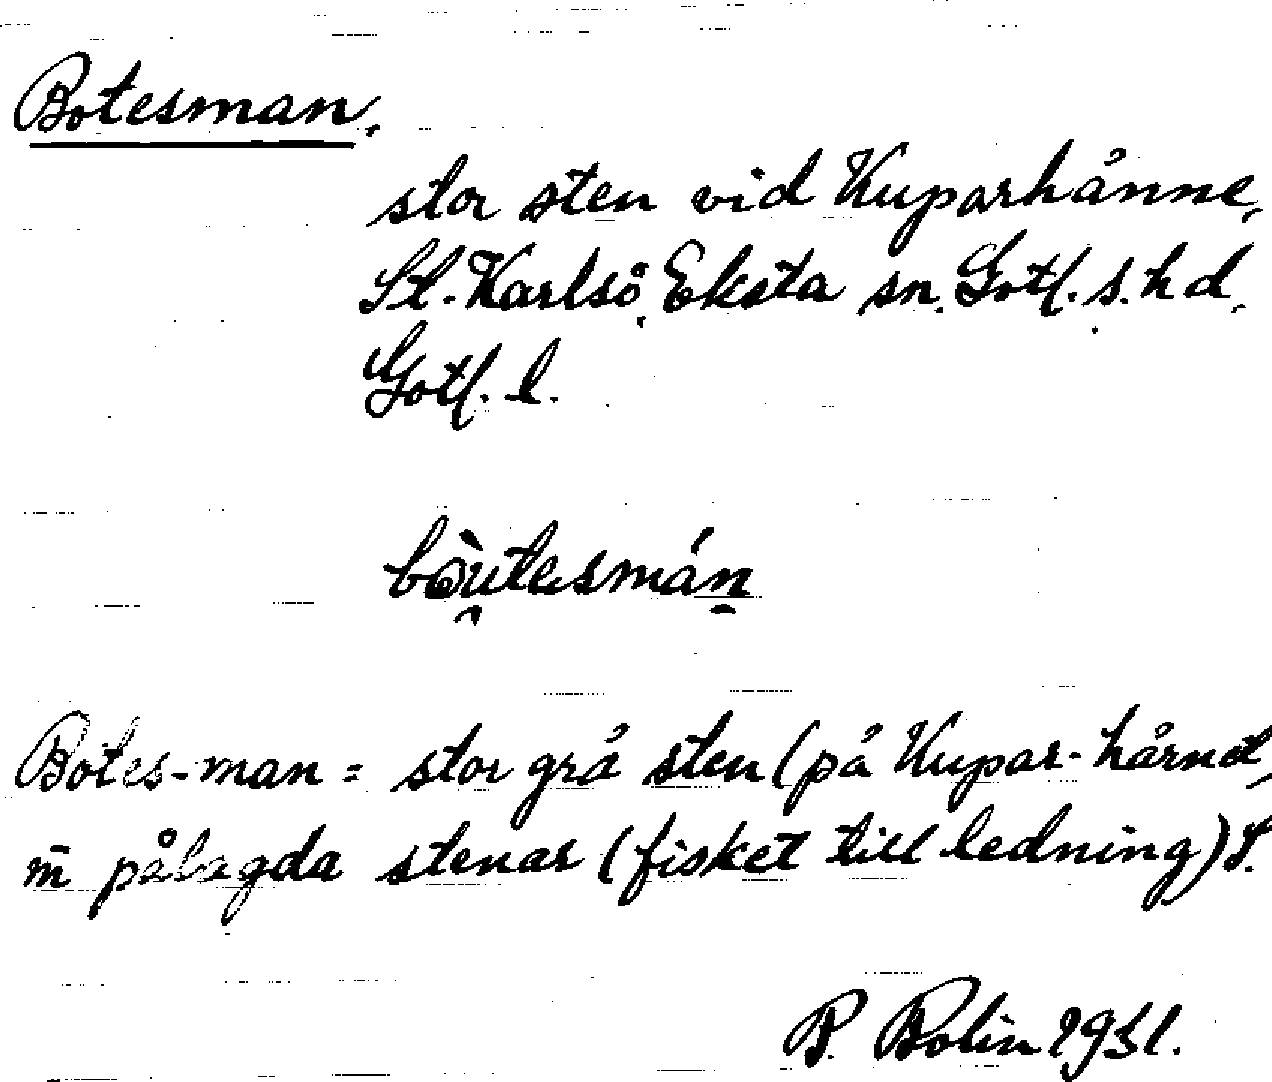 Botesman.
stor sten vid Kuparhånne,
St. Karlsö, Eksta sn. Gotl. s. hd,
Gotl. l.
Botes-man = stor grå sten (på Kupar-hårnet,
m̄ pålagda stenar (fisket till ledning) S.
P. Bolin 1931.